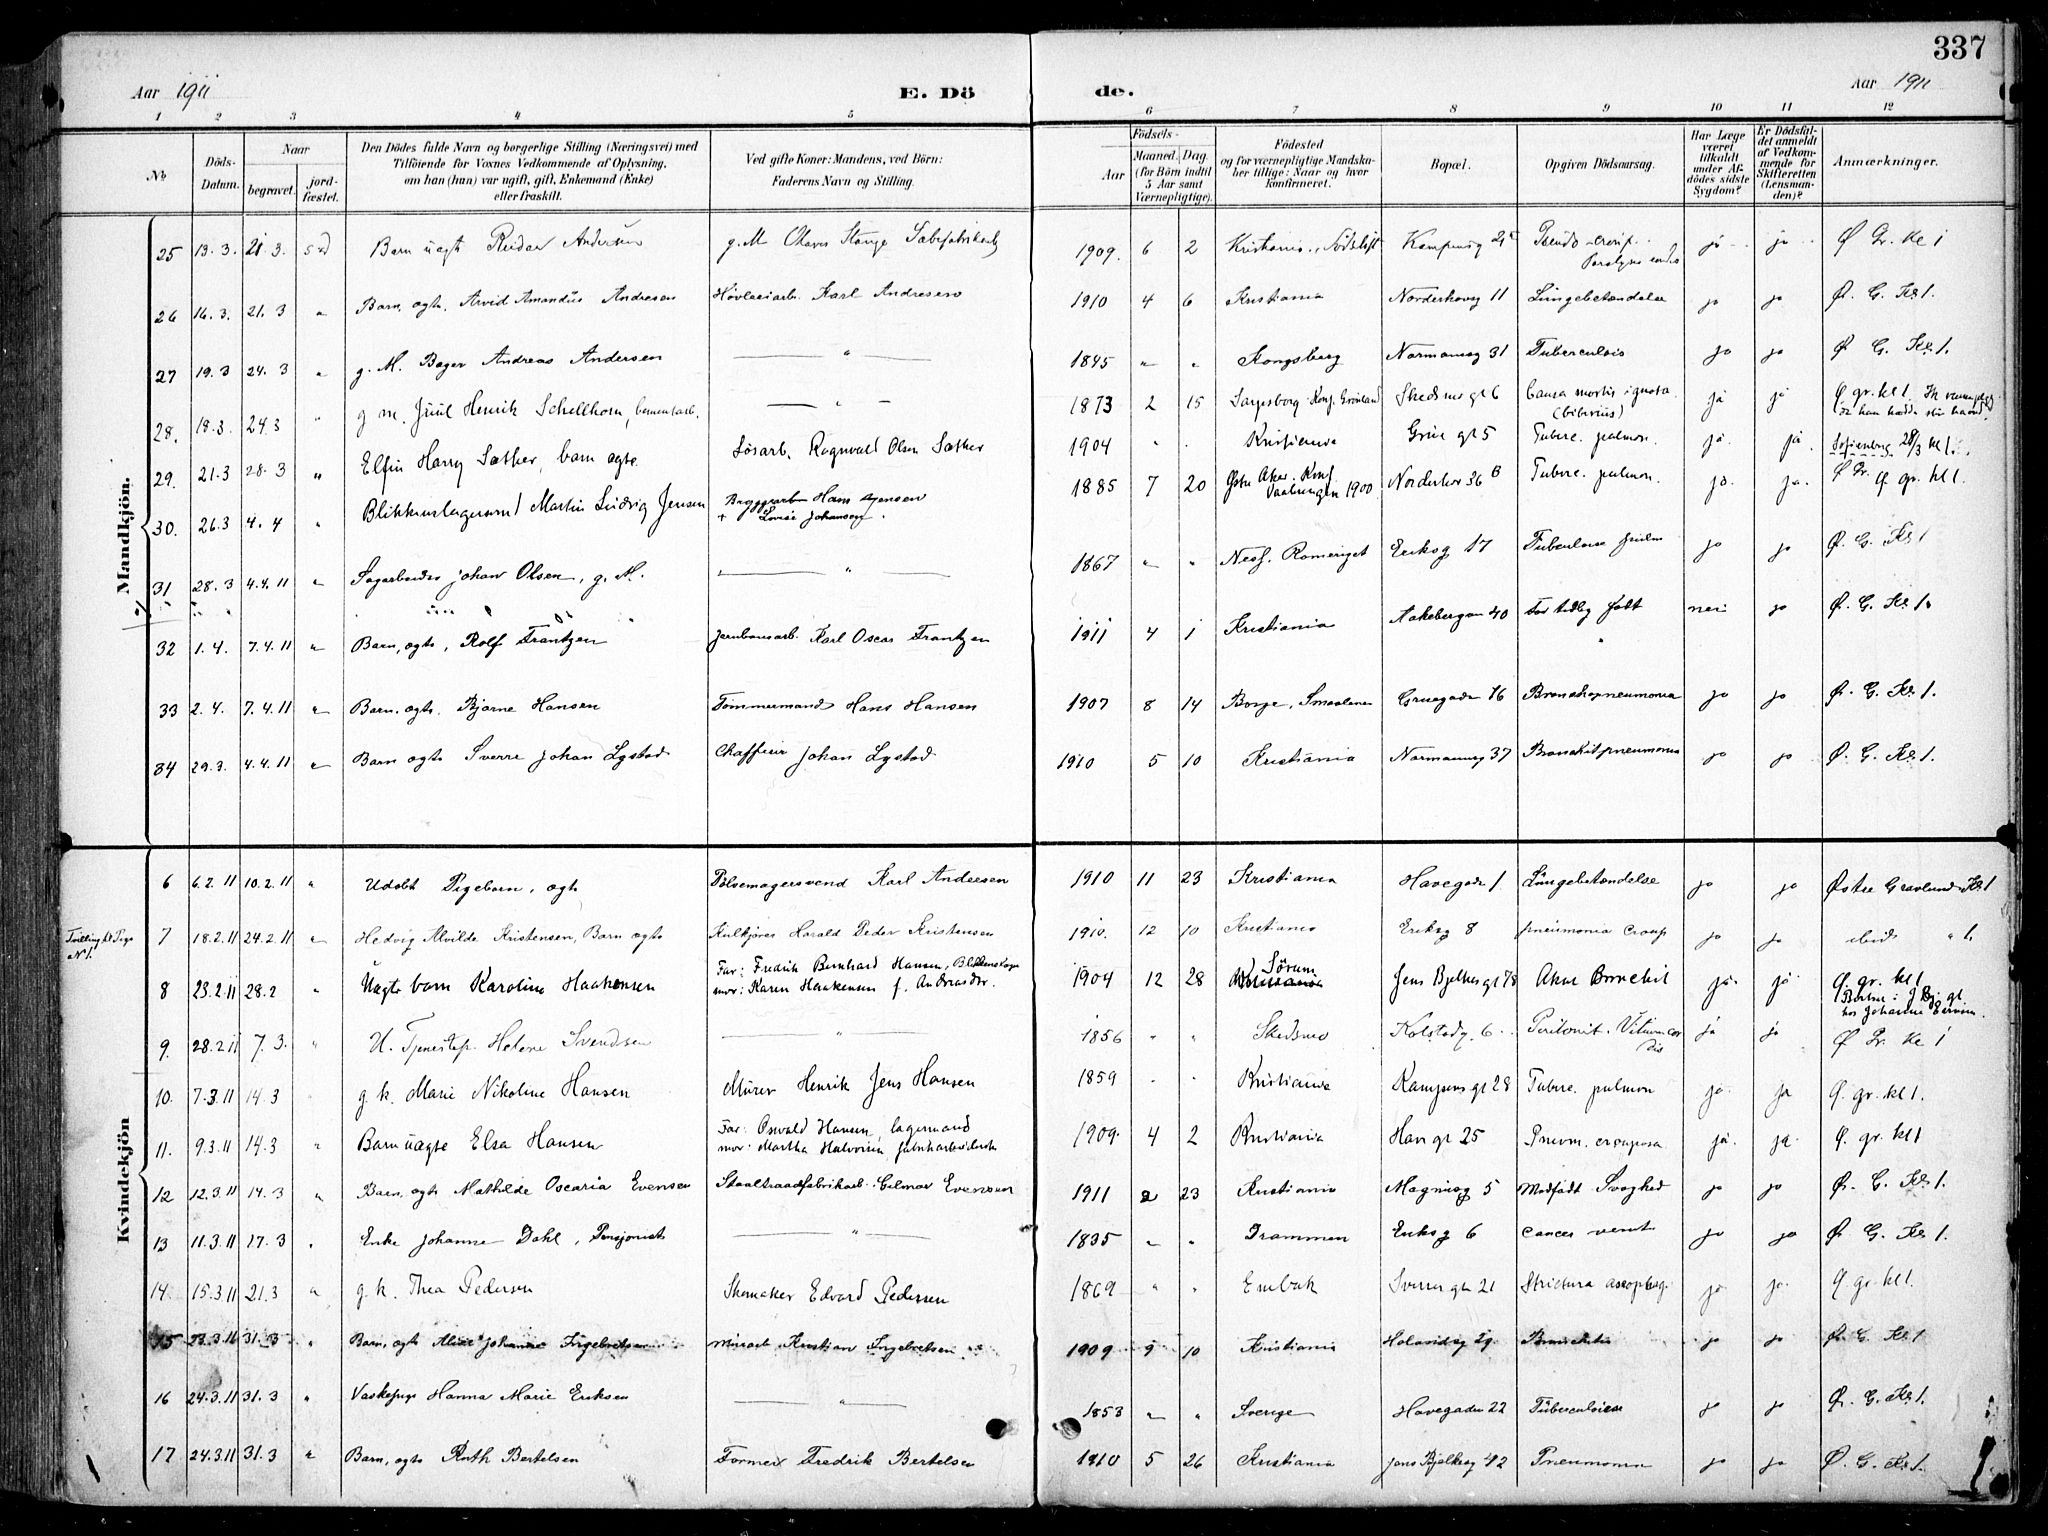 337
Aar 1911 E. Dö de. Aar 1911
1 2 3 4 5 6 7 8 9 10 11 12
No. Döds-Datum. Naar begravet. jordfæstet. Den Dödes fulde Navn og borgerlige Stilling (Næringsvei) med Tilföiende for Voxnes Vedkommende af Oplysning, om han (hun) var ugift, gift, Enkemand (Enke) eller fraskilt. Ved gifte Koner: Mandens, ved Börn: Faderens Navn og Stilling. Födsels- Aar Maaned. Dag. (for Börn indtil 5 Aar samt Værnepligtige). Födested og for værnepligtige Mandskaber tillige: Naar og hvor konfirmeret. Bopæl. Opgiven Dödsaarsag. Har Læge været tilkaldt under Afdödes sidste Sygdom? Er Dödsfaldet anmeldt af Vedkommende for Skifteretten (Lensmanden)? Anmærkninger.
Mandkjön.
25 13.3. 21.3. Barn uægt Reidar Andersen g. M Olaves Stange Sæbefabrikarb 1909. 6 2 Kristiania, Pseudo-croup ja ja Ø Gr. kl 1
26 16.3. 21.3 " Barn, ægte, Arvid Amandus Andresen Høvleriarb. Karl Andresen 1910 4 6 Kristiania Norderhovsg 11 Lungebetændelse ja ja Ø. G. Kl. 1.
27 19.3 24.3 " g. M. Bager Andreas Andersen " 1845 " " Kongsberg Normannsg 31 Tuberculosis ja ja Ø. G. Kl. 1.
28. 18.3. 24.3 " g m. Juul Henrik Schellhorn, cementarb. " 1873 2 15 Sarpsborg. Konf. Grønland Skedsmogt 6 Causa mortis ignota ja ja Ø gr. kl 1.
29. 21.3 28.3 " Elfin Harry Sæther, barn ægte Løsarb. Ragnvald Olsen Sæther 1904 " " Kristiania Grüs gt 5 Tuberc. pulmon. ja. ja. Sofienberg 28/3 kl 1.
30. 26.3 4.4 " Blikkenslagersvend Martin Ludvig Jensen Bryggearb Hans Jensen + Lovise Johansen. 1885 7 20 Østre Aker. Konf. Vaalerengen 1900 Norderhov 36 B Tuberc. pulmon. ja. ja. Ø gr. kl 1.
31 28.3 4.4.11 " Sagarbeider Johan Olsen, g. M. " 1867 " " Nes, Romeriget Eriksg 17 Tuberculose pulm ja ja Ø. G. Kl 1
32 1.4. 7.4.11 " Barn, ægte, Rolf Frantzen Jernbanearb. Karl Oscar Frantzen 1911 4 1 Kristiania Aakebergvn 40 For tidlig født nei ja Ø. G. Kl 1.
33 2.4. 7.4.11 " Barn, ægte, Bjarne Hansen Tømmermand Hans Hansen 1907 8 14 Borge, Smaalenene Grønegade 16 Bronchopneumonia ja ja Ø. G. Kl. 1.
34 29.3. 4.4.11 " Barn ægte Sverre Johan Lystad Chaffeur Johan Lystad 1910 5 10 Kristiania Normannsg 37 ja ja Ø. G. Kl. 1.
Kvindekjön
6 6.2.11 10.2.11 " Udøbt Pigebarn, ægte Pølsemagersvend Karl Andresen 1910 11 23 Kristiania Havegade 1. Lungebetændelse ja ja Østre Gravlund Kl 1
Tvilling
No 1.
7 18.2.11 24.2.11 " Hedvig Alvilde Kristensen, Barn ægte Kulkjører Harald Peder Kristensen 1910. 12 10 Kristiania Eriksg 8 pneumonia croup ja ja ibid " 1.
8 23.2.11 28.2 " Uægte barn Karoline Haakensen Far: Fredrik Bernhard Hansen, mor: Karen Haakensen f. Andreasdtr. 1904 12 28 Sørum Jens Bjelkes gt 78 Akut Bronchit ja. ja. Ø. gr. kl 1
9. 28.2.11 7.3. " U. Tjenestep. Helene Svendsen " 1856 " " Skedsmo Kolstadg. 6 Peritonit. Vitium cordis ja ja Ø Gr. kl 1
10. 7.3.11 14.3 " g. k. Marie Nikoline Hansen Murer Henrik Jens Hansen 1859 " " Kristiania Kampens gt 28 Tuberc. pulmon ja. ja Ø. gr. kl 1.
11. 9.3.11 14.3 " Barn uægte Elsa Hansen Far: Osvald Hansen, lagermand mor: Martha Halvorsen, fabrikarbeiderske 1909. 4 2 Kristiania Have gt 25 Pnevm. crouposa ja. ja. Ø. gr. kl 1
12 12.3.11 14.3 " Barn, ægte Mathilde Oscaria Evensen Staaltraadfabrikarb. Hilmar Evensen 1911 2 23 Kristiania Magnusg 5 Medfødt Svaghed ja ja Ø. G. Kl. 1.
13 11.3.11 17.3 " Enke Johanne Dahl, Pensjonist " 1835 " " Drammen Eriksg 6 Cancer vent ja ja Ø. G. Kl. 1.
14. 15.3.11 21.3 " g. k. Thea Pedersen Skomaker Edvard Pedersen 1869 " " Enebak Sverres gt 21 Strictura oesophag. ja. ja. Ø gr. kl 1.
15 23.3.11 31.3 " Barn, ægte Johanne Ingebretsen Murarb Kristian Ingebretsen 1909 9 10 Kristiania Bronchitis ja ja Ø. G. Kl 1
16 24.3.11 31.3 " Vaskepige Hanna Marie Eriksen " 1853 " " Sverige Havegaden 22 Tuberculose ja ja Ø. G. Kl. 1.
17 24.3.11 31.3 " Barn, ægte Ruth Bertelsen Former Fredrik Bertelsen 1910 5 26 Kristiania Jens Bjelkesg 42 Pneumonia ja ja Ø. G. Kl. 1.